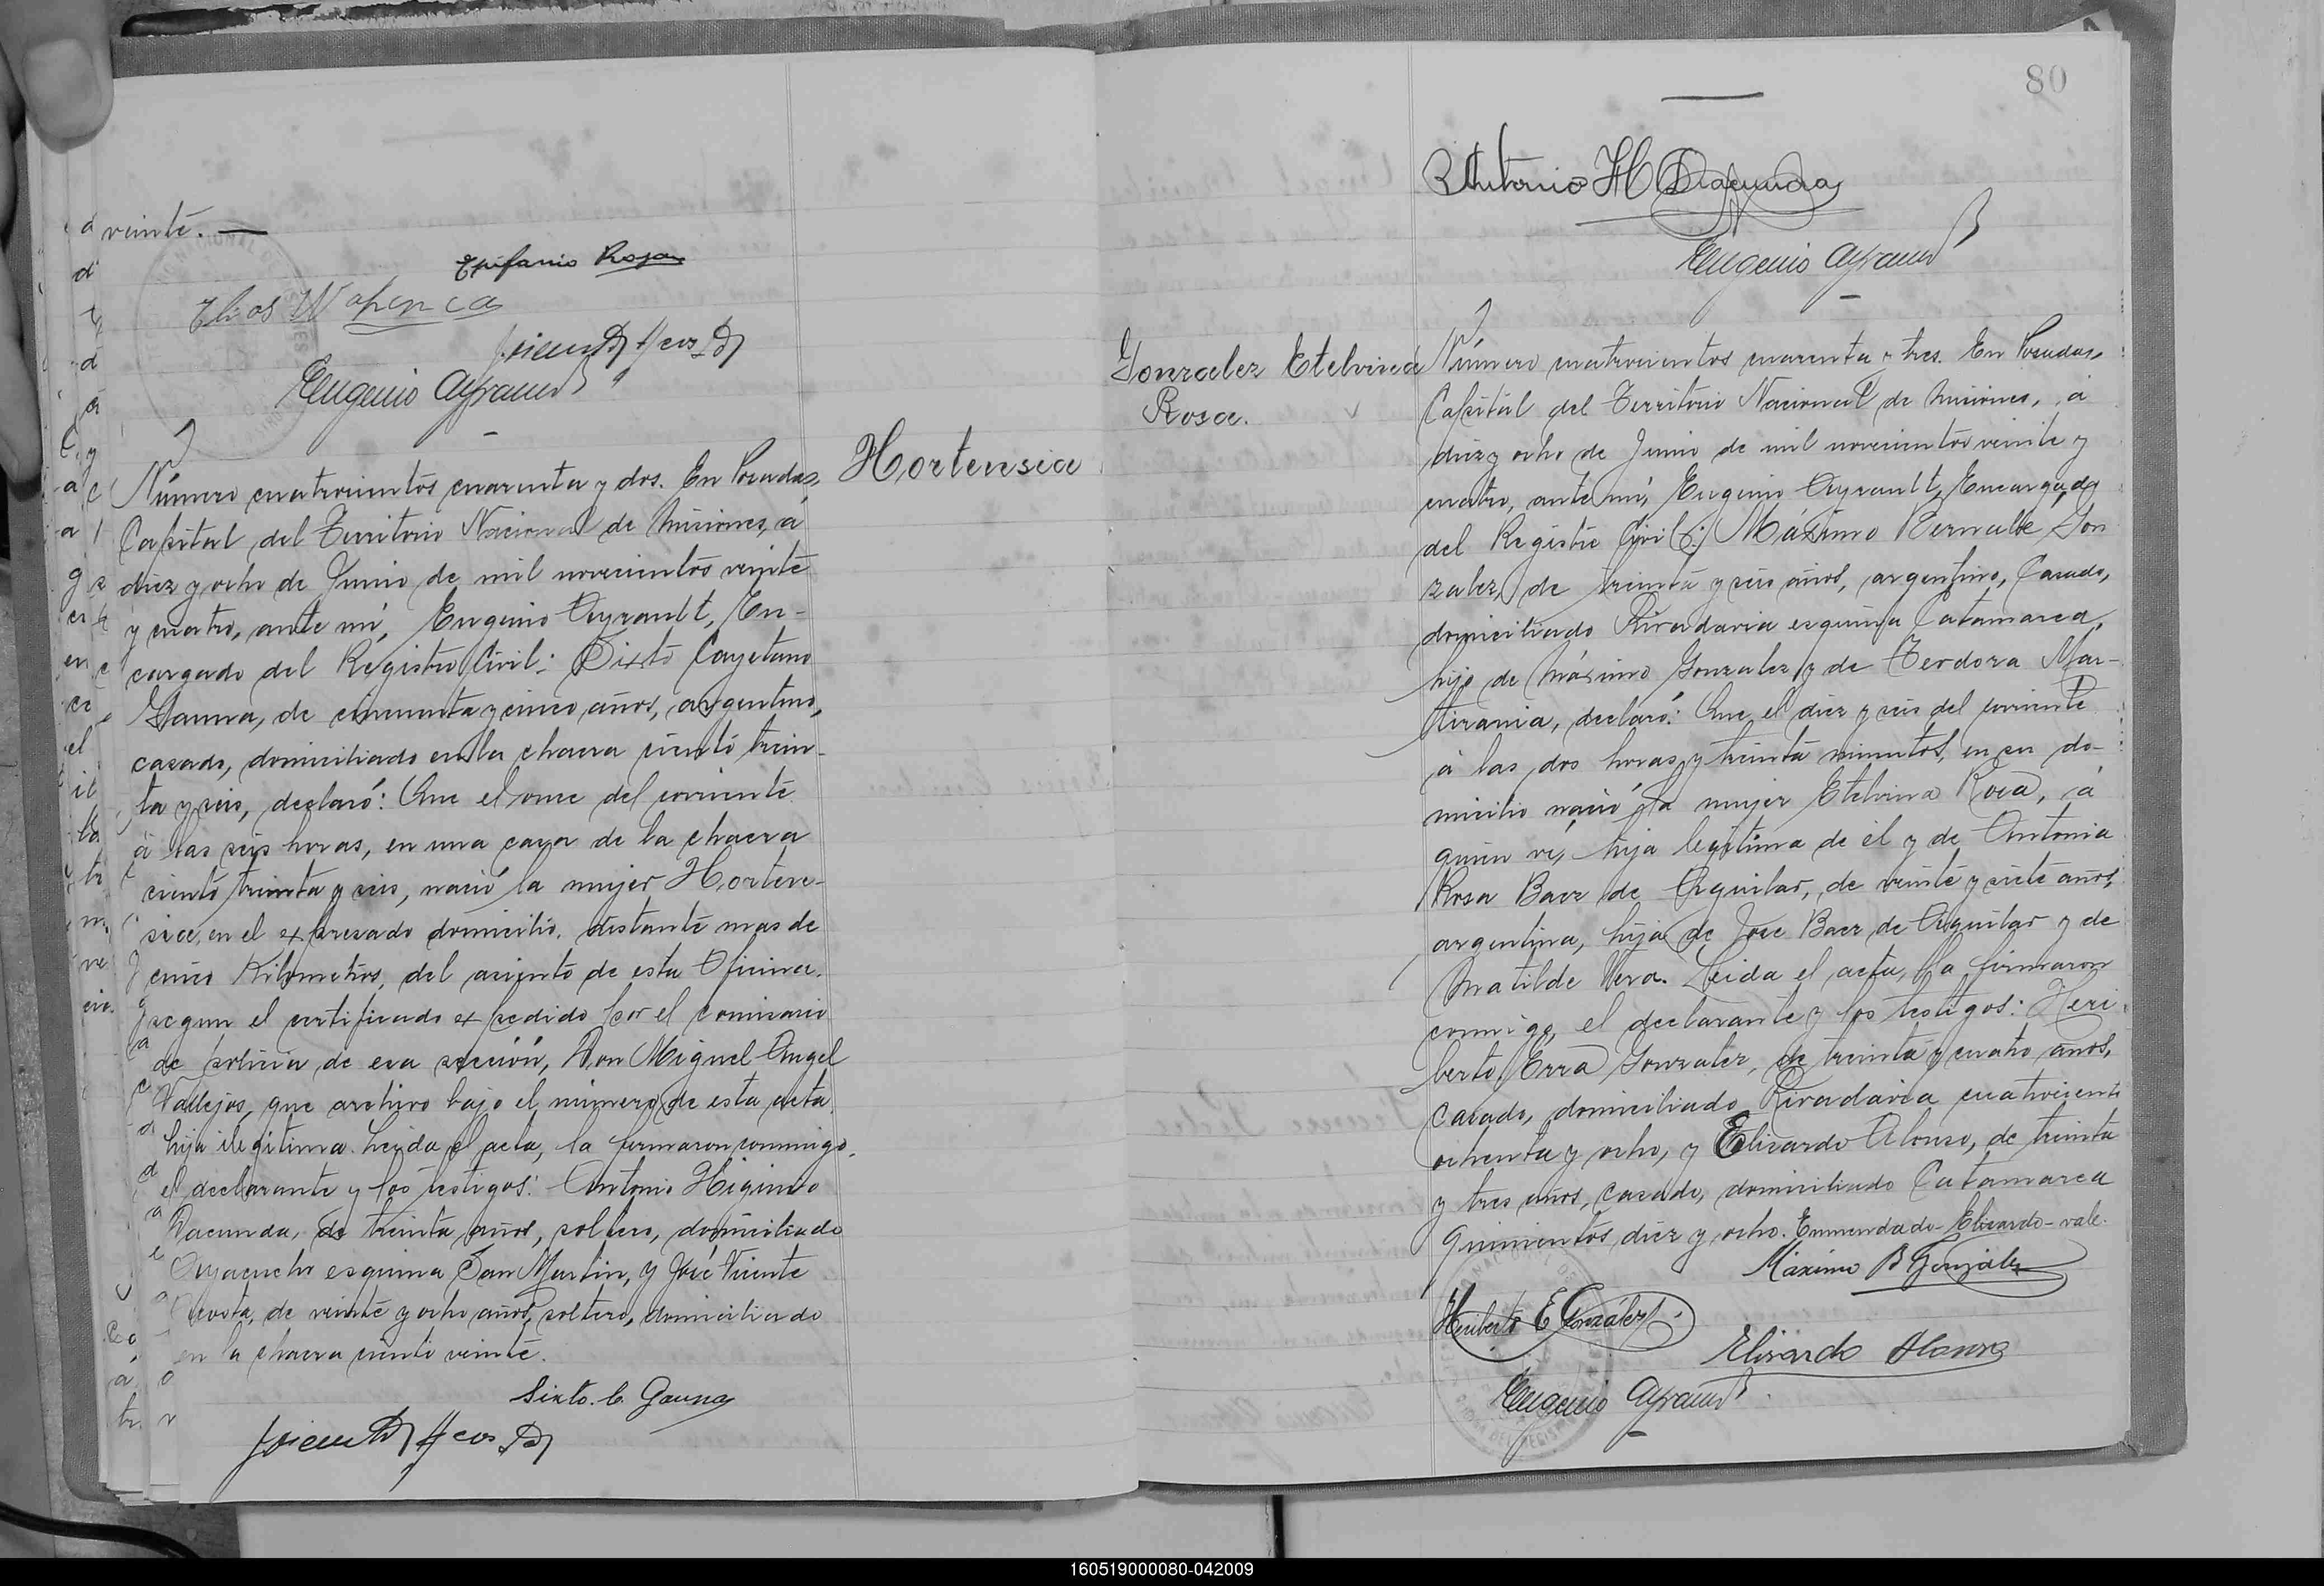 veinte. —
Epifanio Rojas
Elias W
Eugenio Ayrault
Hortensia
Número cuatrocientos cuarenta y dos. En Posadas,
Capital del Territorio Nacional de Misiones, a
diez y ocho de Junio de mil novecientos veinte
y cuatro, ante mí, Eugenio Ayrault, En-
cargado del Registro Civil: Sixto Cayetano
Gauna, de cincuenta y cinco años, argentino,
casado, domiciliado en la chacra ciento trein-
ta y seis, declaró: Que el once del corriente
á las seis horas, en una casa de la chacra
ciento treinta y seis, nació la mujer Horten-
sia, en el expresado domicilio, distante mas de
cinco Kilometros, del asiento de esta Oficina.
segun el certificado expedido por el comisario
de policia de esa sección, Don Miguel Angel
Vallejos, que archivo bajo el número de esta acta.
hija ilegitima. Leida el acta, la firmaron conmigo,
el declarante y los testigos: Antonio Higinio
Dacunda, de treinta años, soltero, domiciliado
Ayacucho esquina San Martin, y José Vicente
Acosta, de veinte y ocho años, soltero, domiciliado
en la chacra ciento veinte.
Sixto. C. Gauna
80
Antonio H Dacunda
Eugenio Ayrault
Gonzalez Etelvina
Rosa.
Número cuatrocientos cuarenta y tres. En Posadas,
Capital del Territorio Nacional de Misiones, á
diez y ocho de Junio de mil novecientos veinte y
cuatro, ante mí, Eugenio Ayrault, Encargado
del Registro Civil: Máximo Bernabe Gon
zalez, de treinta y seis años, argentino, Casado,
domiciliado Rivadavia esquina Catamarca,
hijo de Máximo Gonzalez y de Teodora Mar-
tirania, declaró: Que el diez y seis del corriente
á las dos horas y treinta minutos, en su do-
micilio nació la mujer Etelvina Rosa, á
quien vi, hija legítima de él y de Antonia
Rosa Baez de Aguilar, de veinte y siete años,
argentina, hija de Jose Baez de Aguilar y de
Matilde Vera. Leida el acta, la firmaron
conmigo, el declarante y los testigos: Heri-
berto Erra Gonzalez, de treinta y cuatro años,
Casado, domiciliado Rivadavia cuatrocientos
ochenta y ocho, y Elisardo Alonso, de treinta
y tres años, casado, domiciliado Catamarca
quinientos diez y ocho. Enmendado-Elisardo-vale.
Máximo B González
Heriberto E González
Elisardo Alonso
Eugenio Ayrault
160519000080-042009